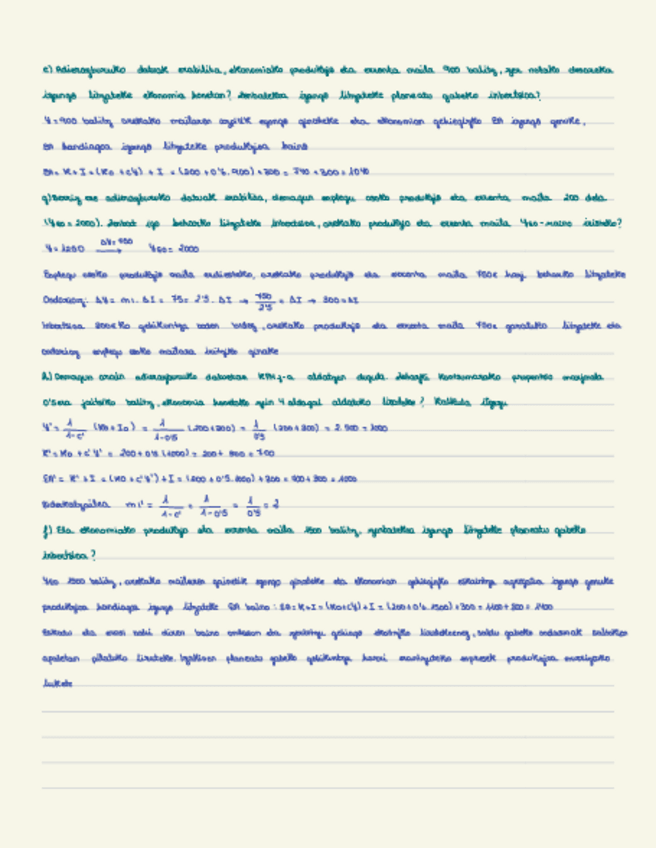 e) Adierazpuruko datuak erabiliz, ekonomiako produkzio eta errenta maila 900 balitz, zer motako desoreka
izango litzateke ekonomia honetan? Zenbatekoa izango litzateke planeatu gabeko inbertsioa?
Y=900 balitz orekako mailaren azpitik egongo ginateke eta ekonomian gehiegizko EA izango genuke,
EA handiagoa izango litzateke produkzioa baino
EA= K+I = (K0 + c'Y) + I = (200+0'6.900)+300 = 740 +300 = 1040
g) Berriz ere adierazpuruko datuak erabiliz, demagun enplegu osoko produkzio eta errenta maila 200 dela
(Yeo = 2000). Zenbat igo beharko litzateke inbertsioa, orekako produkzio eta errenta maila Yeo-raino iristeko?
Y=1250 ΔY=750 → Yeo= 2000
Enplegu osoko produkzio maila erdiesteko, orekako produkzio eta errenta maila 750€ hazi beharko litzateke
Ondorioz: ΔY = m. ΔI = 75= 2'5. ΔI → 750/2'5 = ΔI → 300=ΔI
Inbertsioa 300€ko gehikuntza balitz, orekako produkzio eta errenta maila 750€ garatuko litzateke eta
ondorioz enplegu osoko mailara iritsiko ginake
h) Demagun orain adierazpuruko datuetan aldatzen dugula soilik kontsumorako propentsio marjinala
0'5era jaitsiko balitz, ekonomia honetako zein 4 aldagai aldatuko lirateke? Kalkula itzazu
Y'= 1/1-c' (K0+I0) = 1/1-0'5 (200+300) = 1/0'5 (200+300) = 2.500 = 1000
K'=K0 + c'Y' = 200+0'5 (1000) = 200+ 500 = 700
EA'= K'+I = (K0+c'Y') +I = (200+0'5.1000) +300 = 700+300 = 1000
Biderkatzailea m' = 1/1-c' = 1/1-0'5 = 1/0'5 = 2
f) Eta ekonomiako produkzio eta errenta maila 1500 balitz, zenbatekoa izango litzateke planeatu gabeko
inbertsioa?
1500 balitz, orekako mailaren gainetik egongo ginateke eta ekonomian gehiegizko eskaintza agregatua izango genuke
produkzioa handiagoa izango litzateke EA baino: EA=K+I=(K0+c'Y)+I=(200+0'6.1500)+300=1100+300=1400
eta erosi nahi diren baino ondasun eta zerbitzu gehiago ekoiztuko lituzketenez, saldu gabeko ondasunak
apaletan pilatuko lirateke. planeatu gabeko gehikuntza horri erantzuteko enpresek produkzioa murriztuko
lukete